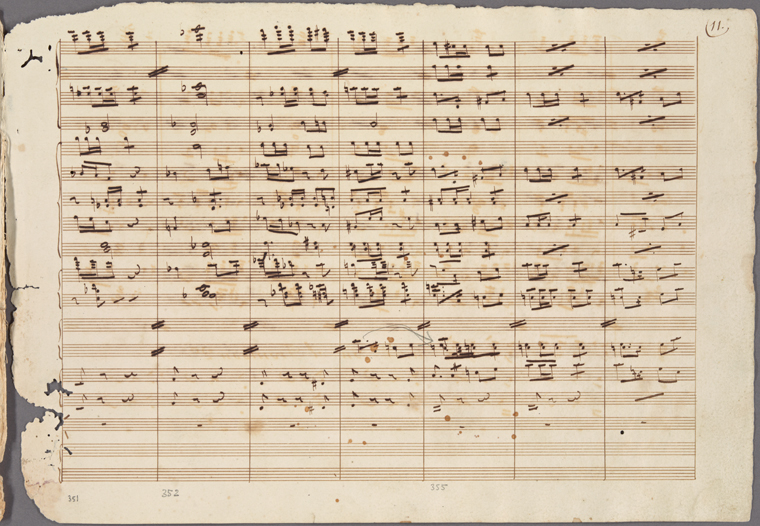 11.
351
352
355